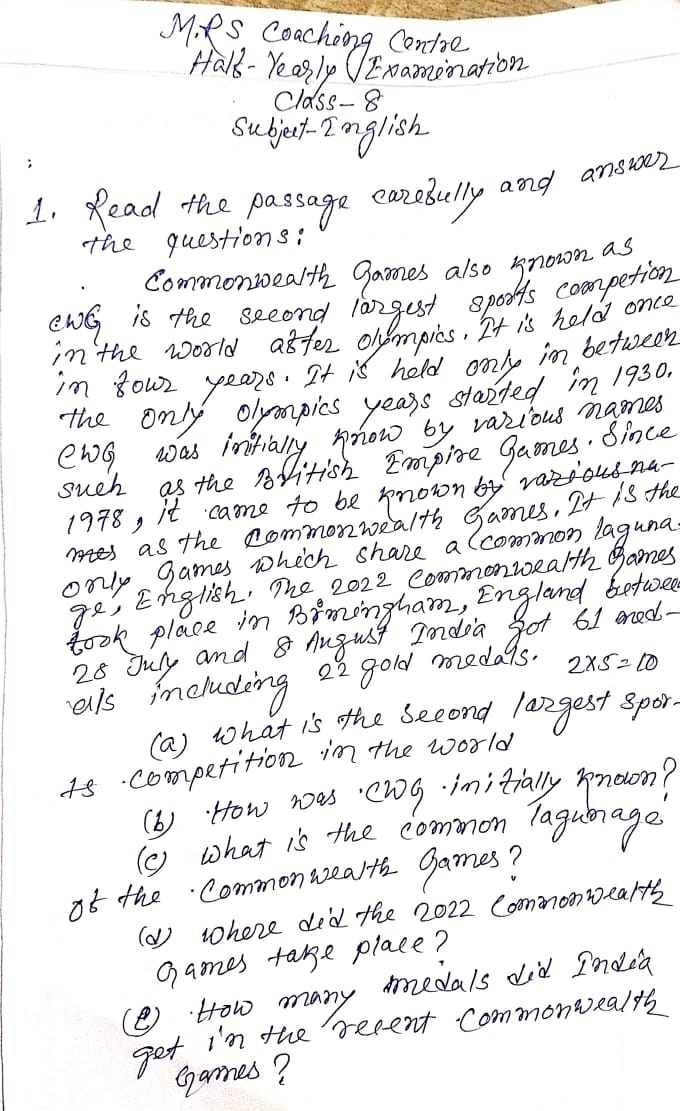 M.R.S Coaching Centre
Half-Yearly Examination
Class-8
Subject-English
1. Read the passage carefully and answer
the questions:
Commonwealth Games also known as
CWG is the second largest sports competion
in the world after olympics. It is held once
in four years. It is held only in between
the only olympics years started in 1930.
CWG was initially know by various names
such as the British Empire Games. Since
1978, it came to be known by various na-
mes as the Commonwealth Games. It is the
only Games which share a common laguna-
ge, English. The 2022 Commonwealth Games
took place in Birmingham, England betwee
28 July and 8 August India got 61 med-
als including 22 gold medals. 2x5=10
(a) what is the second largest spor-
ts competition in the world
(b) How was CWG initially known?
(c) what is the common lagunage
of the Commonwealth Games?
(d) where did the 2022 Commonwealth
Games take place?
(e) How many medals did India
get in the recent Commonwealth
Games?